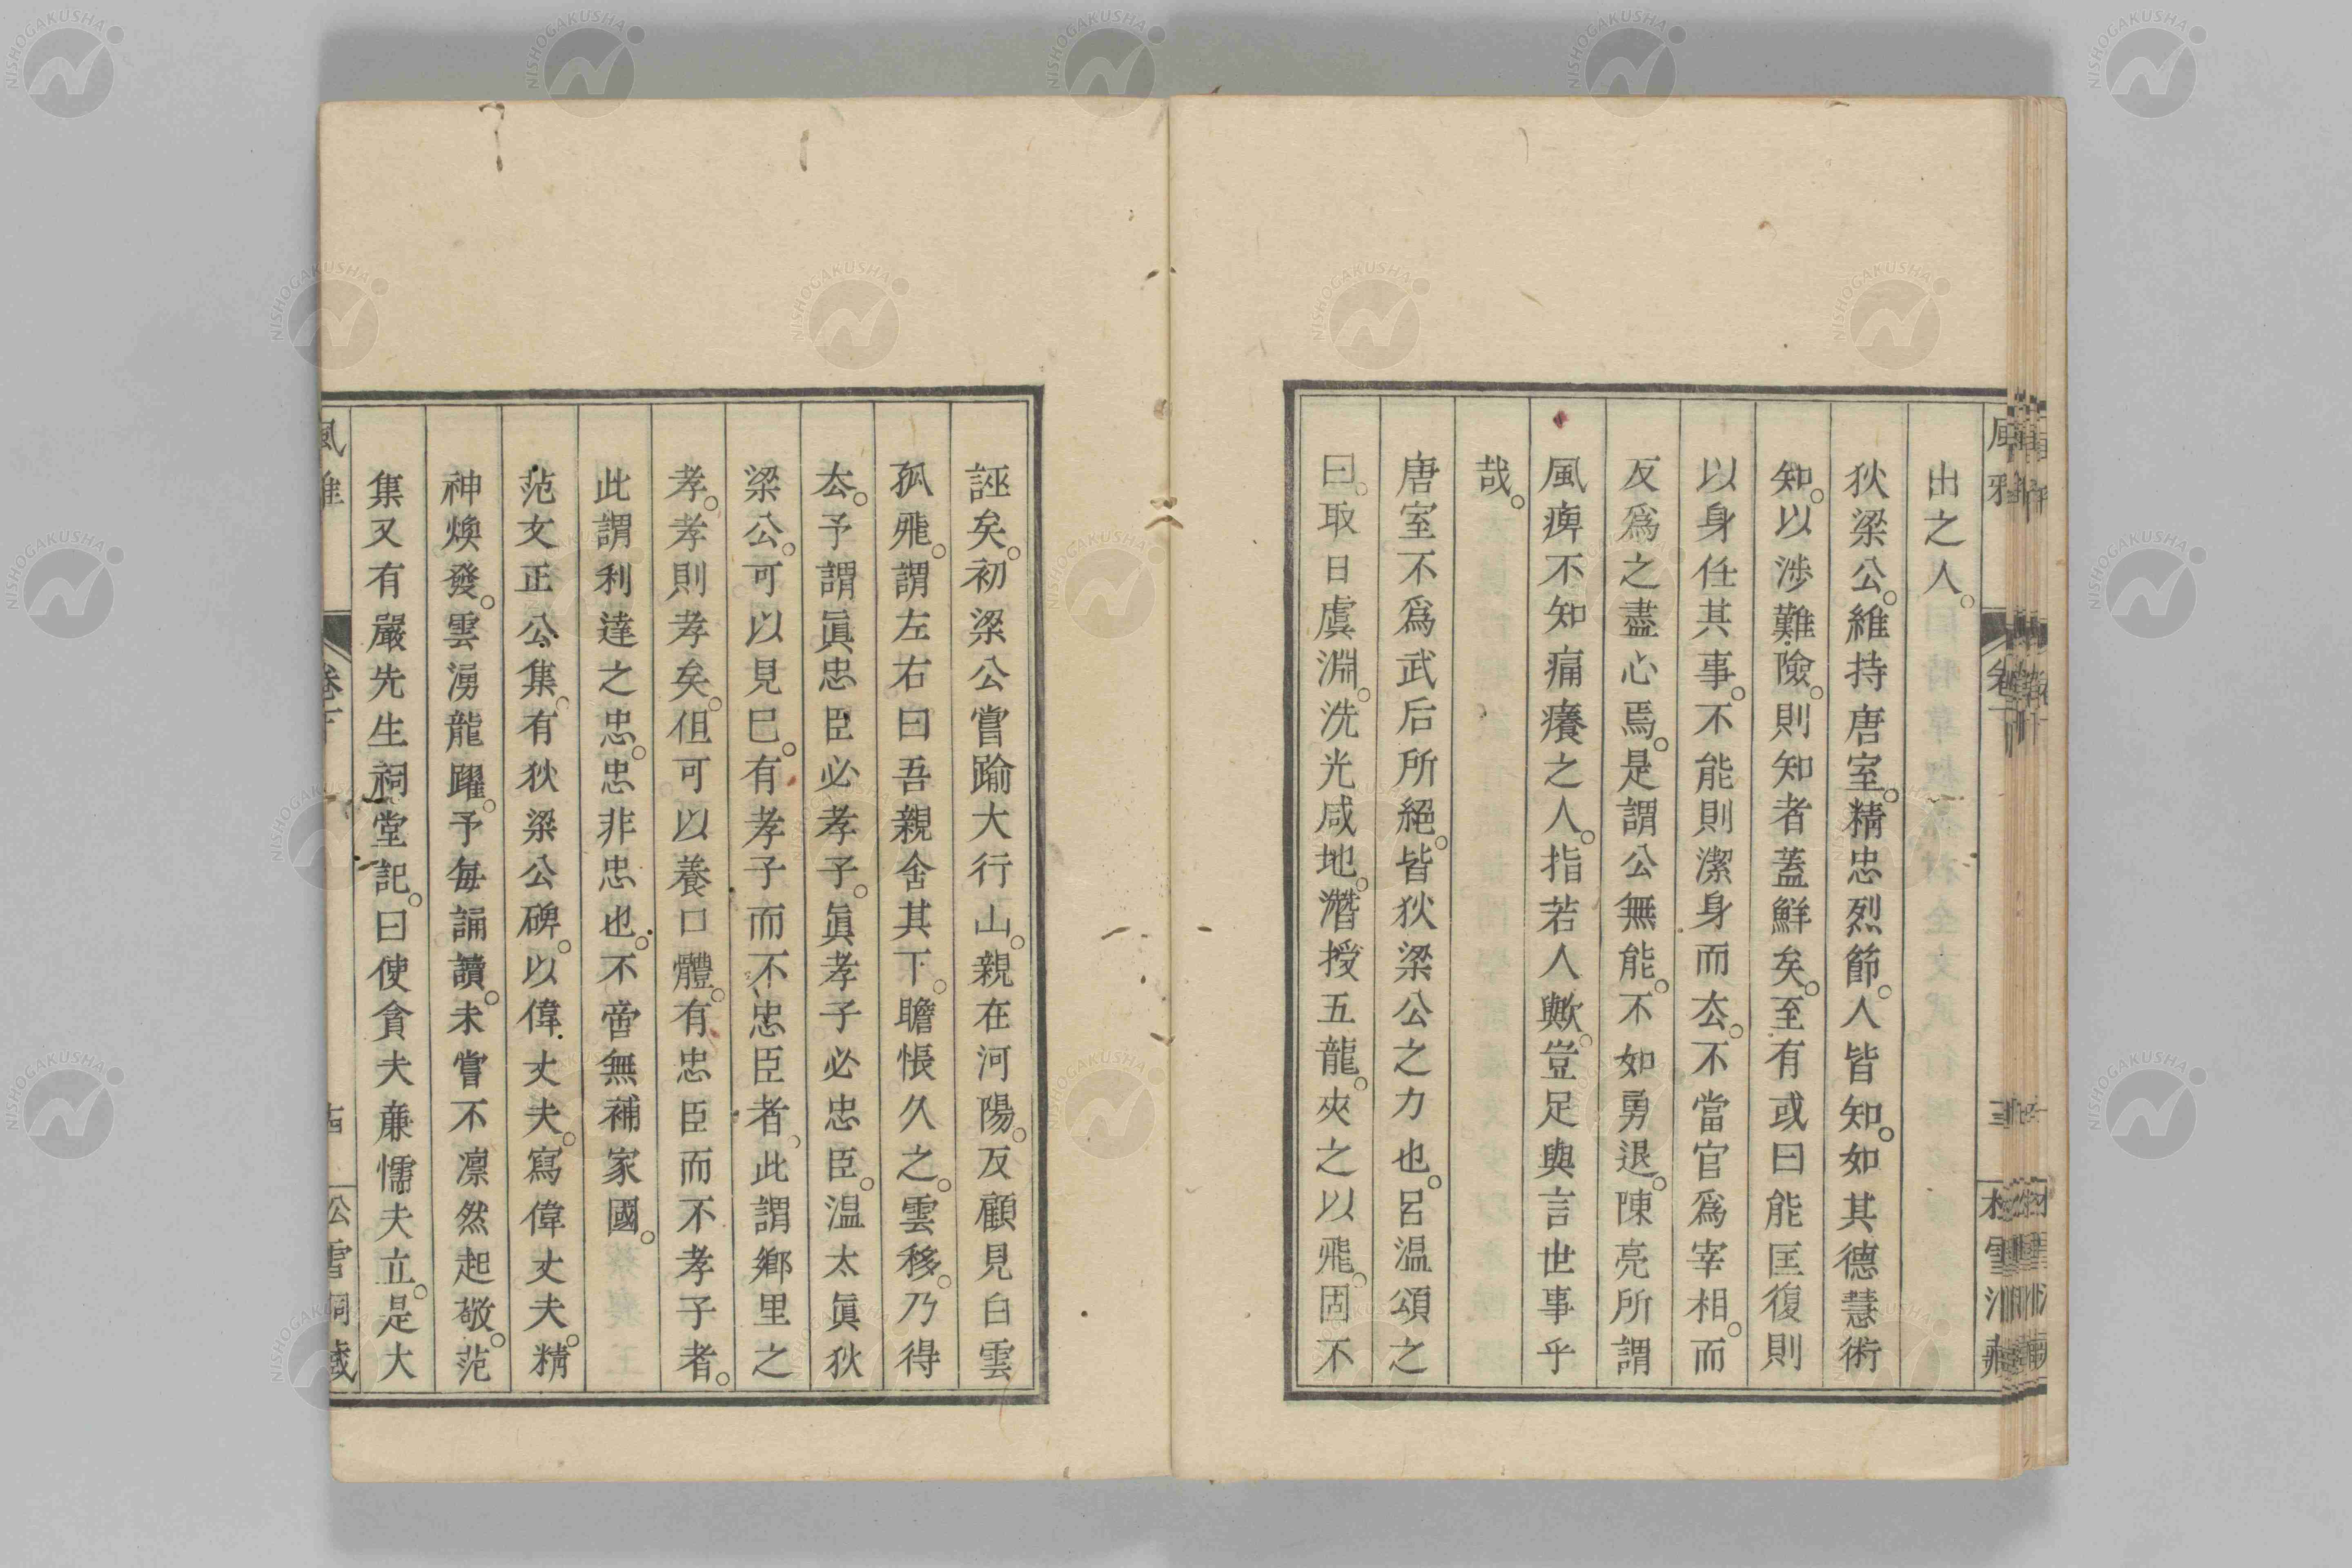 出之人。
狄梁公。維持唐室。精忠烈節。人皆知。如其德慧術
知。以涉難險。則知者蓋鮮矣。至有或曰能匡復則
以身任其事。不能則潔身而厺。不當官爲宰相。而
反爲之盡心焉。是謂公無能。不如勇退。陳亮所謂
風痺不知痛癢之人。指若人歟。豈足與言世事乎
哉。
唐室不爲武后所絕。皆狄梁公之力也。呂溫頌之
曰。取日虞淵。洗光咸地。潛授五龍。夾之以飛。固不
誣矣。初梁公嘗踰大行山。親在河陽。反顧見白雲
孤飛。謂左右曰吾親舍其下。瞻悵久之。雲移。乃得
厺。予謂眞忠臣必孝子。眞孝子必忠臣。溫太眞狄
梁公。可以見已。有孝子而不忠臣者。此謂鄉里之
孝。孝則孝矣。但可以養口體。有忠臣而不孝子者。
此謂利達之忠。忠非忠也。不啻無補家國。
范文正公集。有狄梁公碑。以偉丈夫。寫偉丈夫。精
神煥發。雲湧龍躍。予每誦讀。未嘗不凛然起敬。范
集又有嚴先生祠堂記。曰使貪夫廉懦夫立。是大